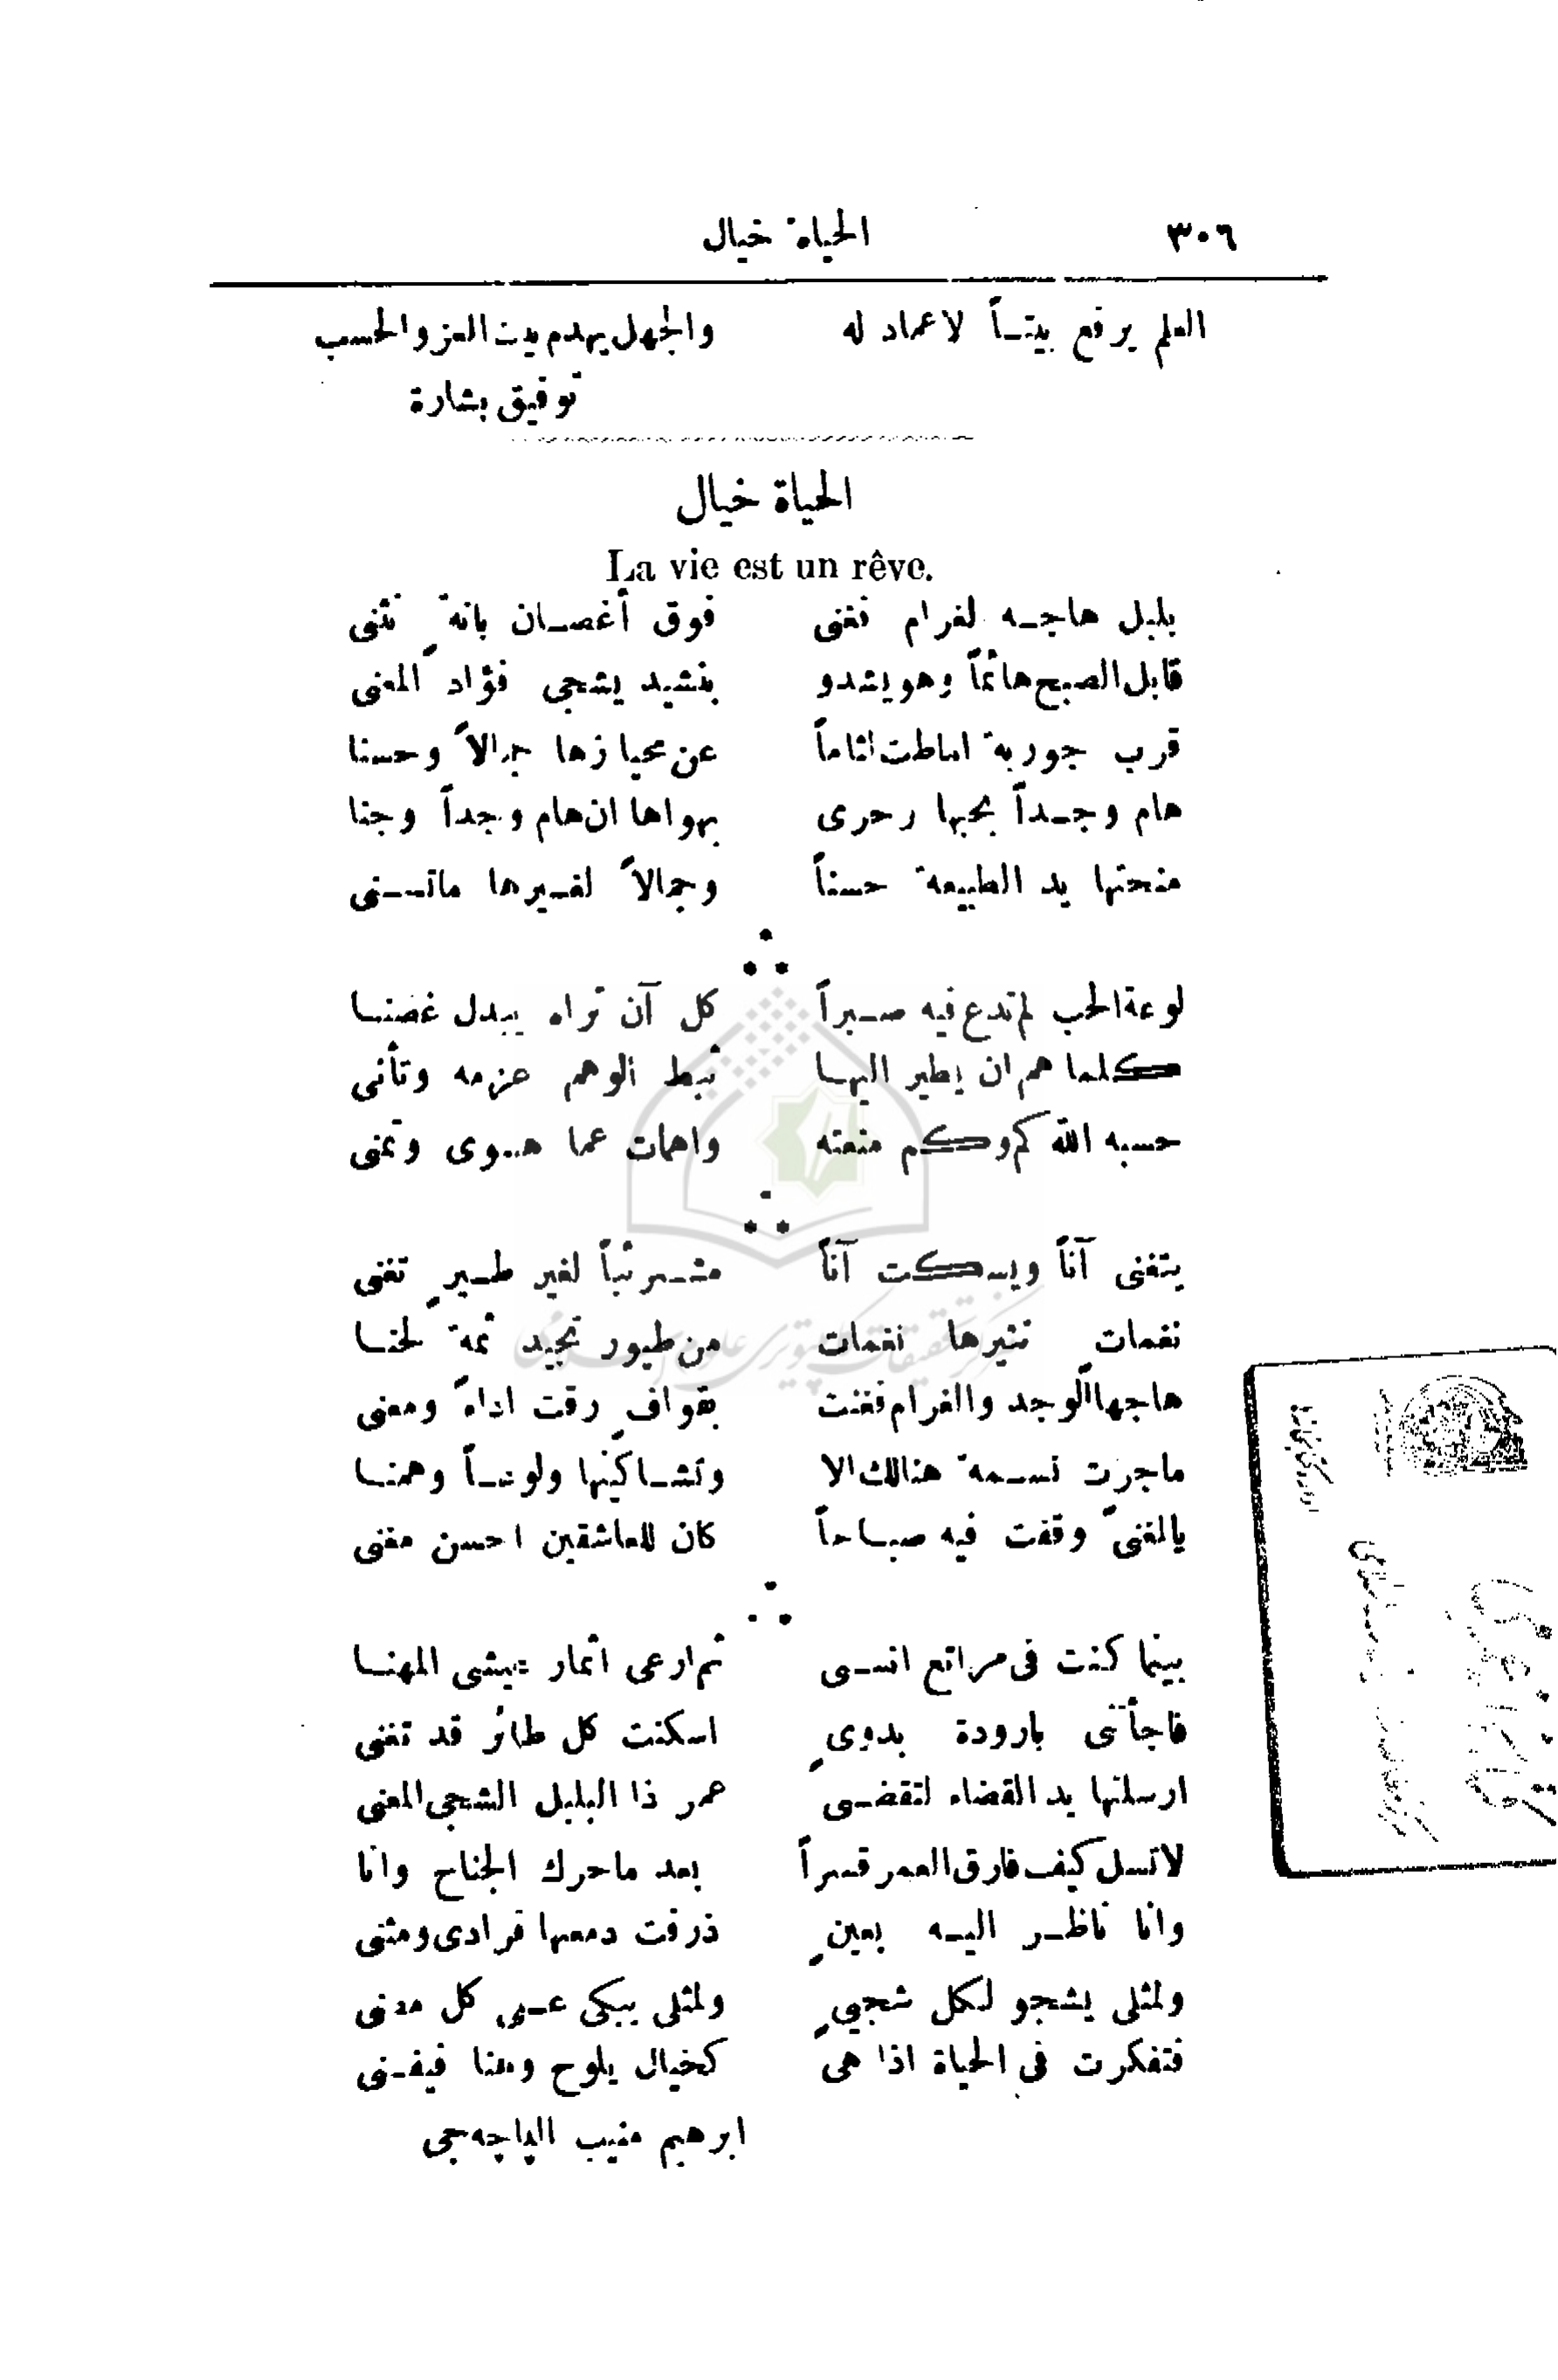 ٣٠٦ الحياة خيال
العلم يرفع بيتـاً لاعماد له والجهل يهدم بيت العز والحسب
توفيق بشارة
الحياة خيال
La vie est un rêve.
بلبل هاجـه لغرام فغنى فوق أغصـان بانة تثنى
قابل الصبح هائماً وهو يشدو بنشيد يشجي فؤاد المعنى
قرب جورية اماطت لثاماً عن محيا زها جمالاً وحسنا
هام وجـداً بحبها وحرى بهواها ان هام وجداً وجنا
منحتها يد الطبيعة حسناً وجمالاً لغـيرها ماتسـنى
لوعة الحب لم تدع فيه صـبراً كل آن تراه يبدل غصنـا
كلما هم ان يطير اليهـا ثبط الوهم عزمه وتأنى
حسبه الله كم وكم منعته واهمات عما هـوى وتمنى
يتغنى آناً ويسكت آناً مشـرئباً لغير طـيرٍ تغنى
نغماتٍ تثيرها نغمات من طيور تجيد ثمة لحنـا
هاجها الوجد والغرام فغنت بقوافٍ رقت اداءً ومعنى
ماجرت نسـمة هنالك الا وتشـاكينها ولوعـاً وهمنـا
يالمغنىً وقفت فيه صبـاحاً كان للعاشقين احسن مغنى
بينما كنت في مراتع انسـى ثم ارعى اثمار عيشى المهنـا
فاجأتنى بارودة بدويٍ اسكنت كل طائر قد تغنى
ارسلتها يد القضاء لتقضـى عمر ذا البلبل الشجي المعنى
لاتسل كيف فارق العمر قسراً بعد ماحرك الجناح وانا
وانا ناظـر اليـه بعينٍ ذرفت دمعها فرادى ومثنى
ولمثلى يشجو لكل شجيٍ ولمثلى يبكى عـلى كل مدنى
فتفكرت في الحياة اذا هى كخيال يلوح وهنا فيفـنى
ابرهيم منيب الپاچه‌جى